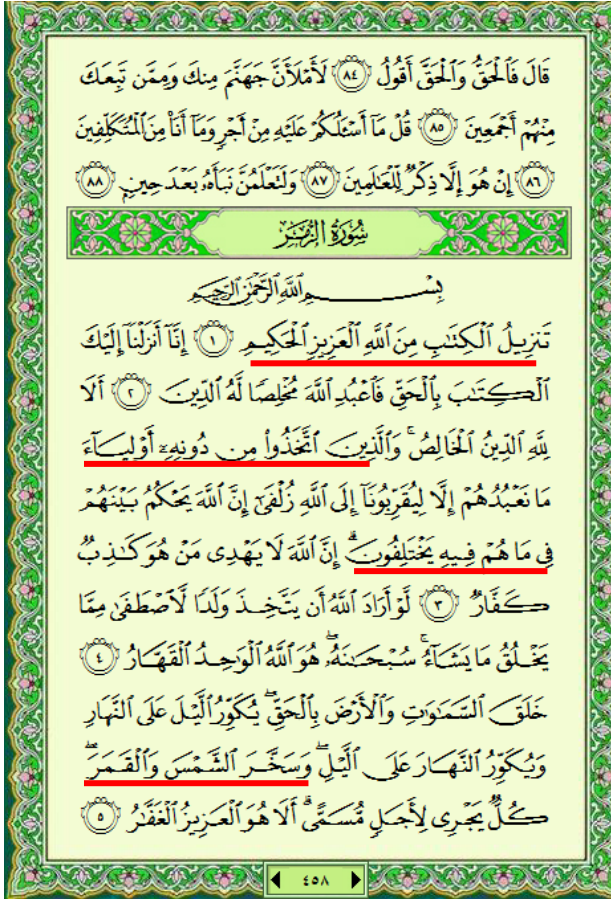 قَالَ فَٱلْحَقُّ وَٱلْحَقَّ أَقُولُ ﴿٨٤﴾ لَأَمْلَأَنَّ جَهَنَّمَ مِنكَ وَمِمَّن تَبِعَكَ
مِنْهُمْ أَجْمَعِينَ ﴿٨٥﴾ قُلْ مَآ أَسْـَٔلُكُمْ عَلَيْهِ مِنْ أَجْرٍ وَمَآ أَنَا۠ مِنَ ٱلْمُتَكَلِّفِينَ
﴿٨٦﴾ إِنْ هُوَ إِلَّا ذِكْرٌ لِّلْعَٰلَمِينَ ﴿٨٧﴾ وَلَتَعْلَمُنَّ نَبَأَهُۥ بَعْدَ حِينٍۭ ﴿٨٨﴾
سُورَةُ الزُّمَر
بِسْمِ ٱللَّهِ ٱلرَّحْمَٰنِ ٱلرَّحِيمِ
تَنزِيلُ ٱلْكِتَٰبِ مِنَ ٱللَّهِ ٱلْعَزِيزِ ٱلْحَكِيمِ ﴿١﴾ إِنَّآ أَنزَلْنَآ إِلَيْكَ
ٱلْكِتَٰبَ بِٱلْحَقِّ فَٱعْبُدِ ٱللَّهَ مُخْلِصًا لَّهُ ٱلدِّينَ ﴿٢﴾ أَلَا
لِلَّهِ ٱلدِّينُ ٱلْخَالِصُ ۚ وَٱلَّذِينَ ٱتَّخَذُوا۟ مِن دُونِهِۦٓ أَوْلِيَآءَ
مَا نَعْبُدُهُمْ إِلَّا لِيُقَرِّبُونَآ إِلَى ٱللَّهِ زُلْفَىٰٓ إِنَّ ٱللَّهَ يَحْكُمُ بَيْنَهُمْ
فِى مَا هُمْ فِيهِ يَخْتَلِفُونَ ۗ إِنَّ ٱللَّهَ لَا يَهْدِى مَنْ هُوَ كَٰذِبٌ
كَفَّارٌ ﴿٣﴾ لَّوْ أَرَادَ ٱللَّهُ أَن يَتَّخِذَ وَلَدًا لَّٱصْطَفَىٰ مِمَّا
يَخْلُقُ مَا يَشَآءُ ۚ سُبْحَٰنَهُۥ ۖ هُوَ ٱللَّهُ ٱلْوَٰحِدُ ٱلْقَهَّارُ ﴿٤﴾
خَلَقَ ٱلسَّمَٰوَٰتِ وَٱلْأَرْضَ بِٱلْحَقِّ ۖ يُكَوِّرُ ٱلَّيْلَ عَلَى ٱلنَّهَارِ
وَيُكَوِّرُ ٱلنَّهَارَ عَلَى ٱلَّيْلِ ۖ وَسَخَّرَ ٱلشَّمْسَ وَٱلْقَمَرَ ۖ
كُلٌّ يَجْرِى لِأَجَلٍ مُّسَمًّى ۗ أَلَا هُوَ ٱلْعَزِيزُ ٱلْغَفَّٰرُ ﴿٥﴾
٤٥٨